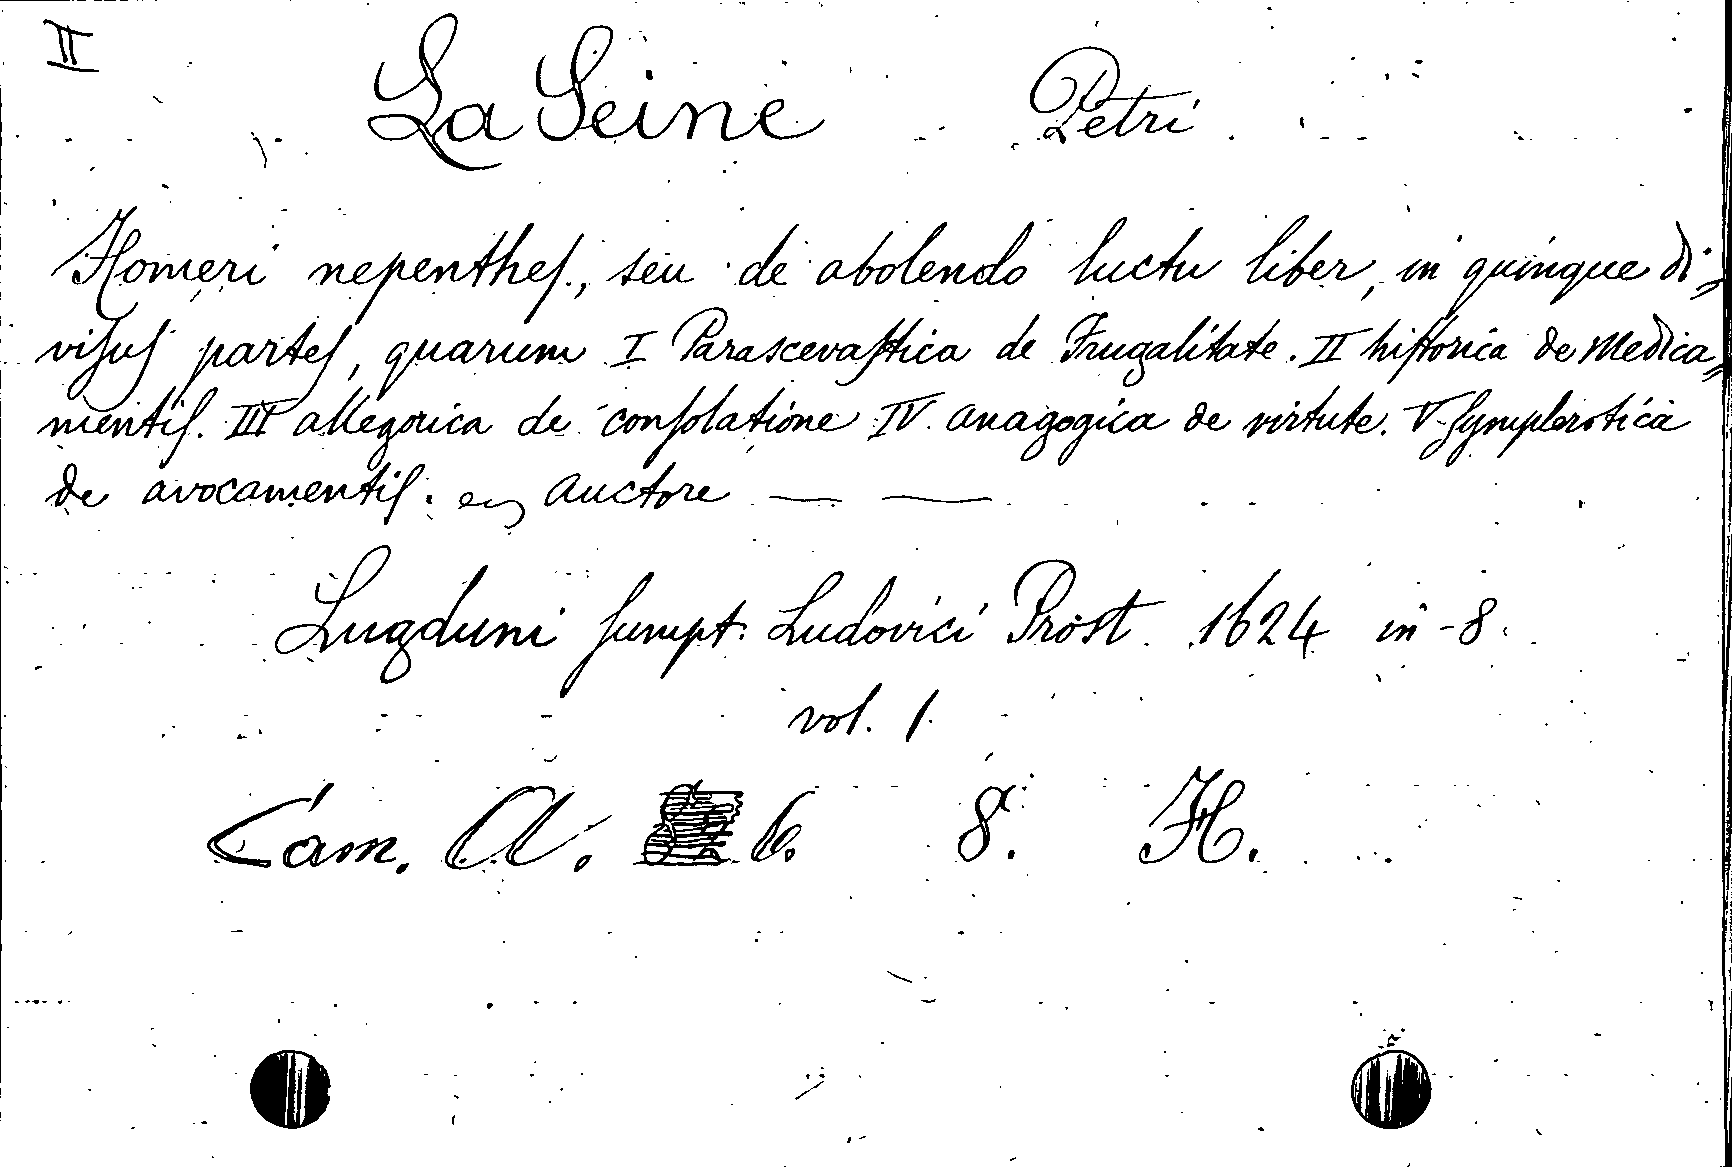 II
La Seine Petri
Homeri nepenthes., seu de abolendo luctu liber, in quinque di„
visus partes, quarum I Parascevastica de Frugalitate. II historica de Medica„
mentis. III allegorica de consolatione IV. anagogica de virtute. V. Symplerotica
de avocamentis. Auctore — —
Lugduni sumpt. Ludovici Prost. 1624 in-8.
vol. 1.
Cam. A. 6. 8. H.